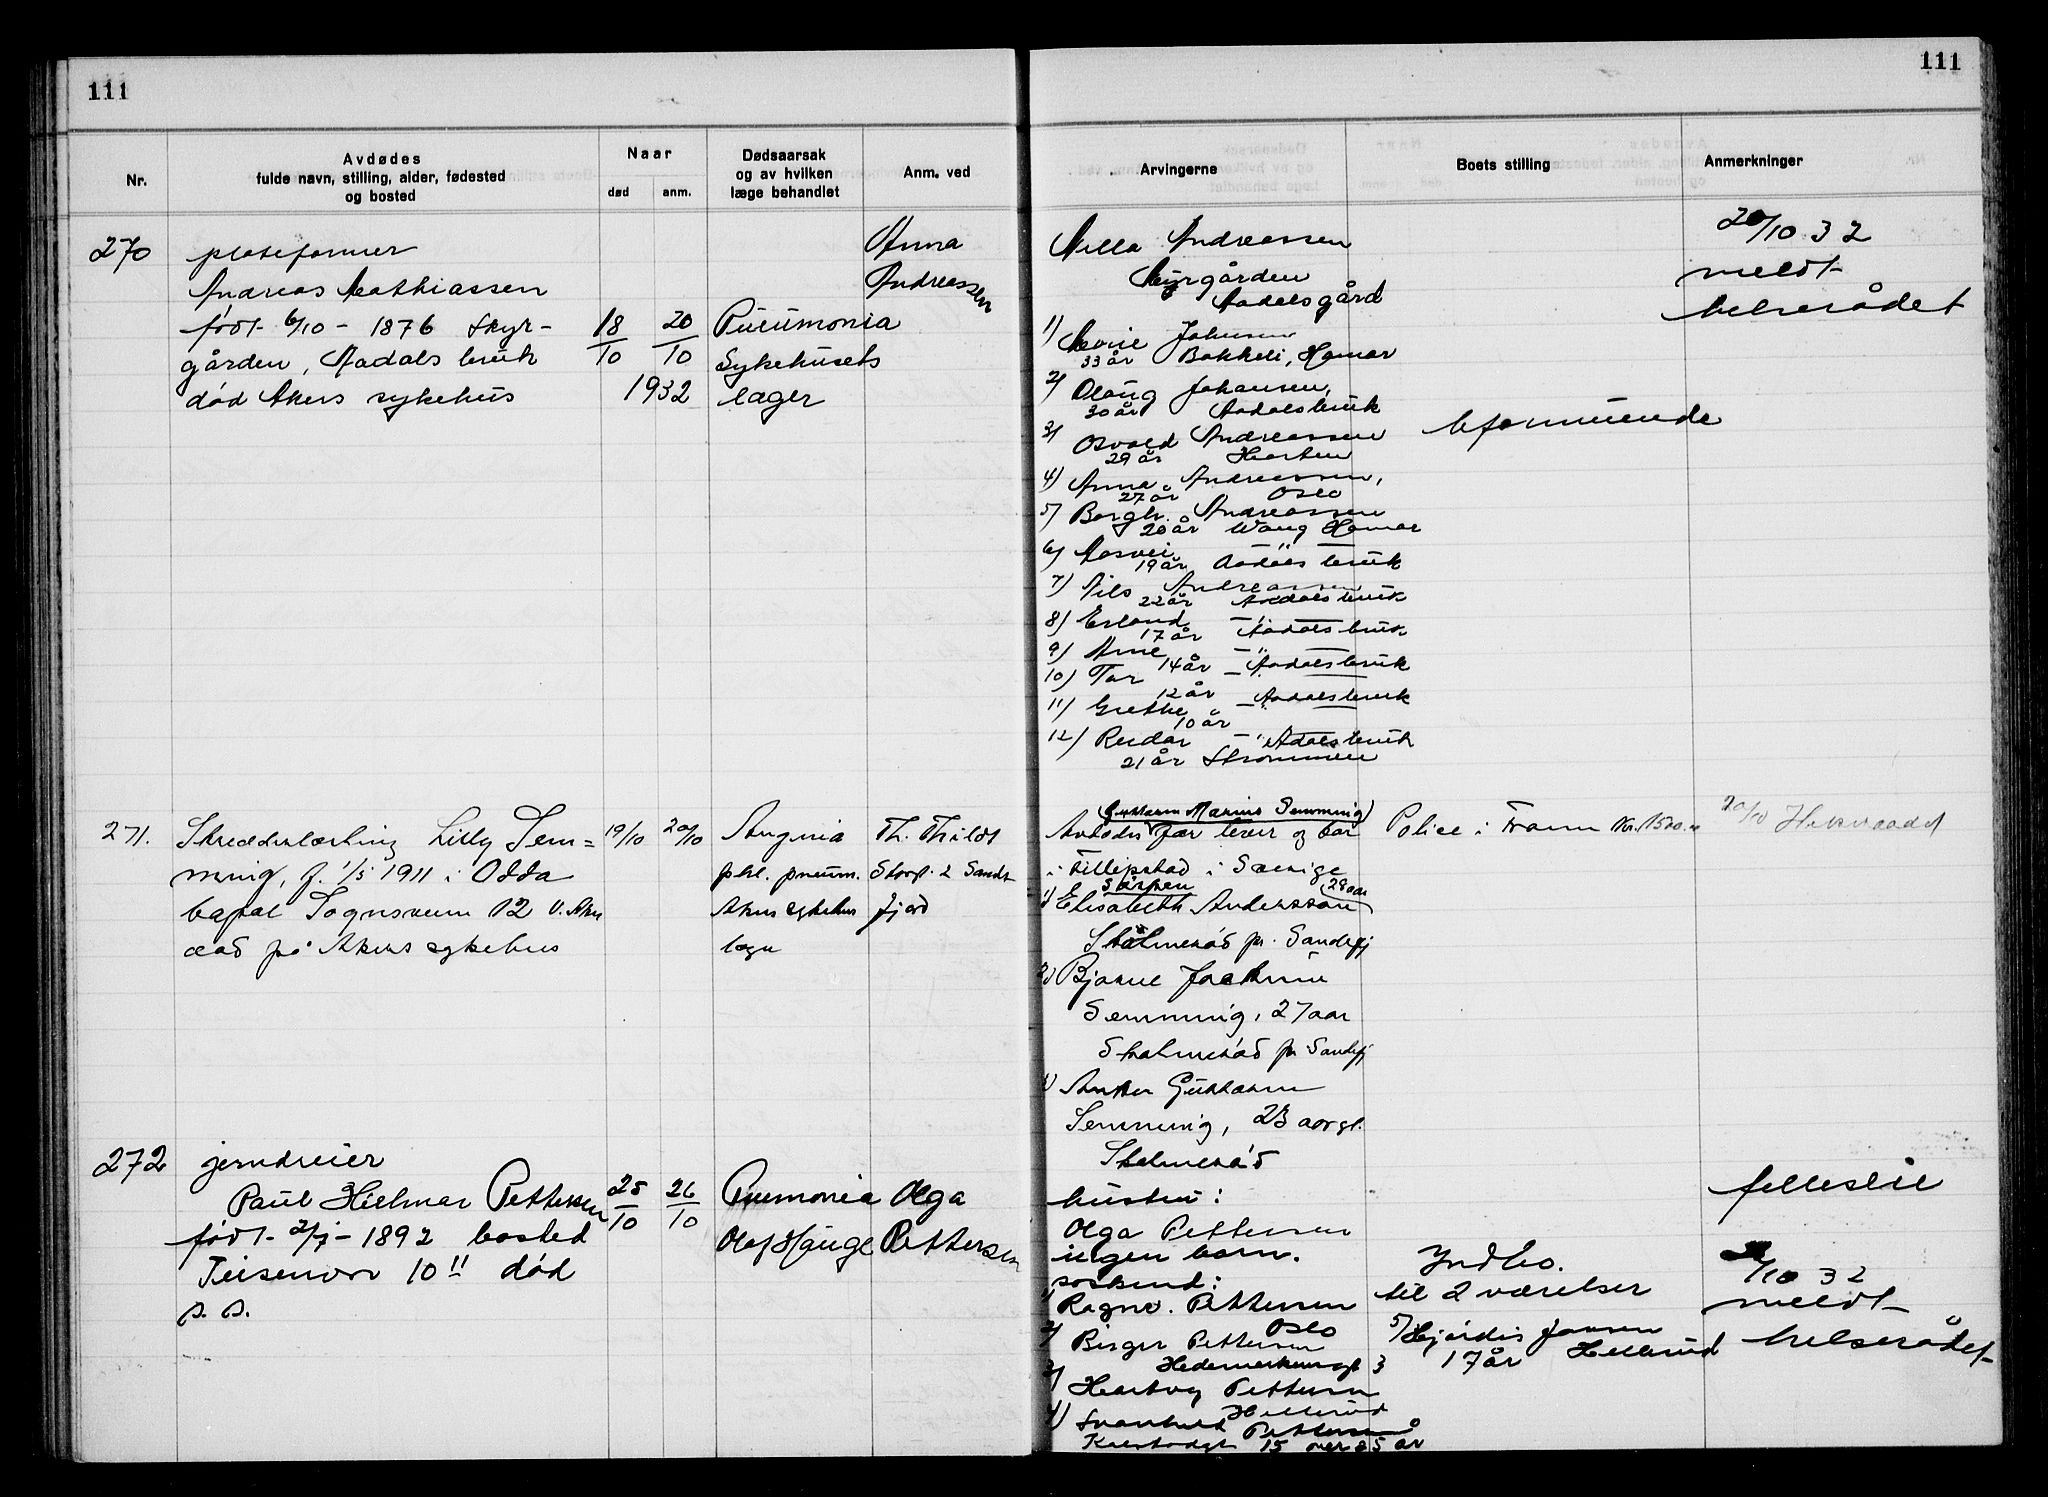 111
111
Nr.
Avdødes
fulde navn, stilling, alder, fødested
og bosted
Naar
død
anm.
Dødsaarsak
og av hvilken
læge behandlet
Anm. ved
Arvingerne
Boets stilling
Anmerkninger
270
plateformer
Andreas Mathiassen
født 6/10 - 1876
gården, Aadals bruk
død Akers sykehus
18/10
20/10
1932
Pneumonia
Sykehusets
læger
Anna
Andreassen
Milla Andreassen
Myrgården
Aadalsgård
1)
33 år Bakkeli, Hamar
2) Olaug Johansen,
30 år Aadalsbruk
3) Osvald Andreassen
29 år
4) Anna Andreassen,
27 år Oslo
5) Borgh. Andreassen
20 år Wang Hamar
6)
19 år Aadals bruk
7) Nils Andreassen
22 år Aadals bruk
8) Erland - " -
17 år Aadals bruk
9) Arne - " -
14 år Aadalsbruk
10) Tor - " -
12 år Aadalsbruk
11) Grethe - " -
10 år
12) Reidar - " - Adalsbruk
21 år Strømmen
uformuende
20/10 32
meldt
helserådet
271.
Skredderlærling Lilly Sem=
ming, f. 1/5 1911 i Odda
bopæl Sognsveien 12 V. Aker
død på Akers sykehus
19/10
20/10
Angina
phl. pneum.
Akers sykehus
læge
Th. Thildt
Storgt. 2 Sande
fjord
Guttorm Marius Semming
Avdødes far lever og bor
i Fillipstad i Sverige
1) Elisabeth Andersson 29 aar
pr. Sandefj
2) Bjarne Joachim
Semming, 27 aar
pr Sandefj
3) Anker Guttorm
Semming, 23 aar gl.
Police i Fram Kr. 1520.-
20/10 Helseraadet
272
jerndreier
Paul Hjelmar Pettersen
født 2/7 - 1892 bosted
Teisenvn 10 II død
s. s.
25/10
26/10
Pneumonia
Olaf Hauge
Olga
Pettersen
hustru:
Olga Pettersen
ingen barn.
søskend:
1) Ragnv. Pettersen
Oslo
2) Birger Pettersen
Hedemarkensgt 3
3) Hartvig Pettersen
Hellerud
4) Svanhild Pettersen
15 over 25 år
Indbo.
til 2 værelser
5) Hjørdis Jansen
17 år Hellerud
felleseie
/10 32
meldt
helserådet